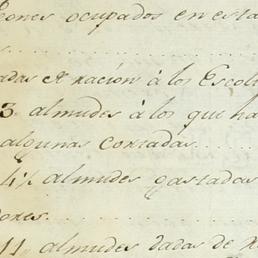 eones ocupados en esta
adas de ración á los Escolt
3 almudes á los que ha
algunas contadas
4½ almudes gastadas
dores
11 almudes dadas de